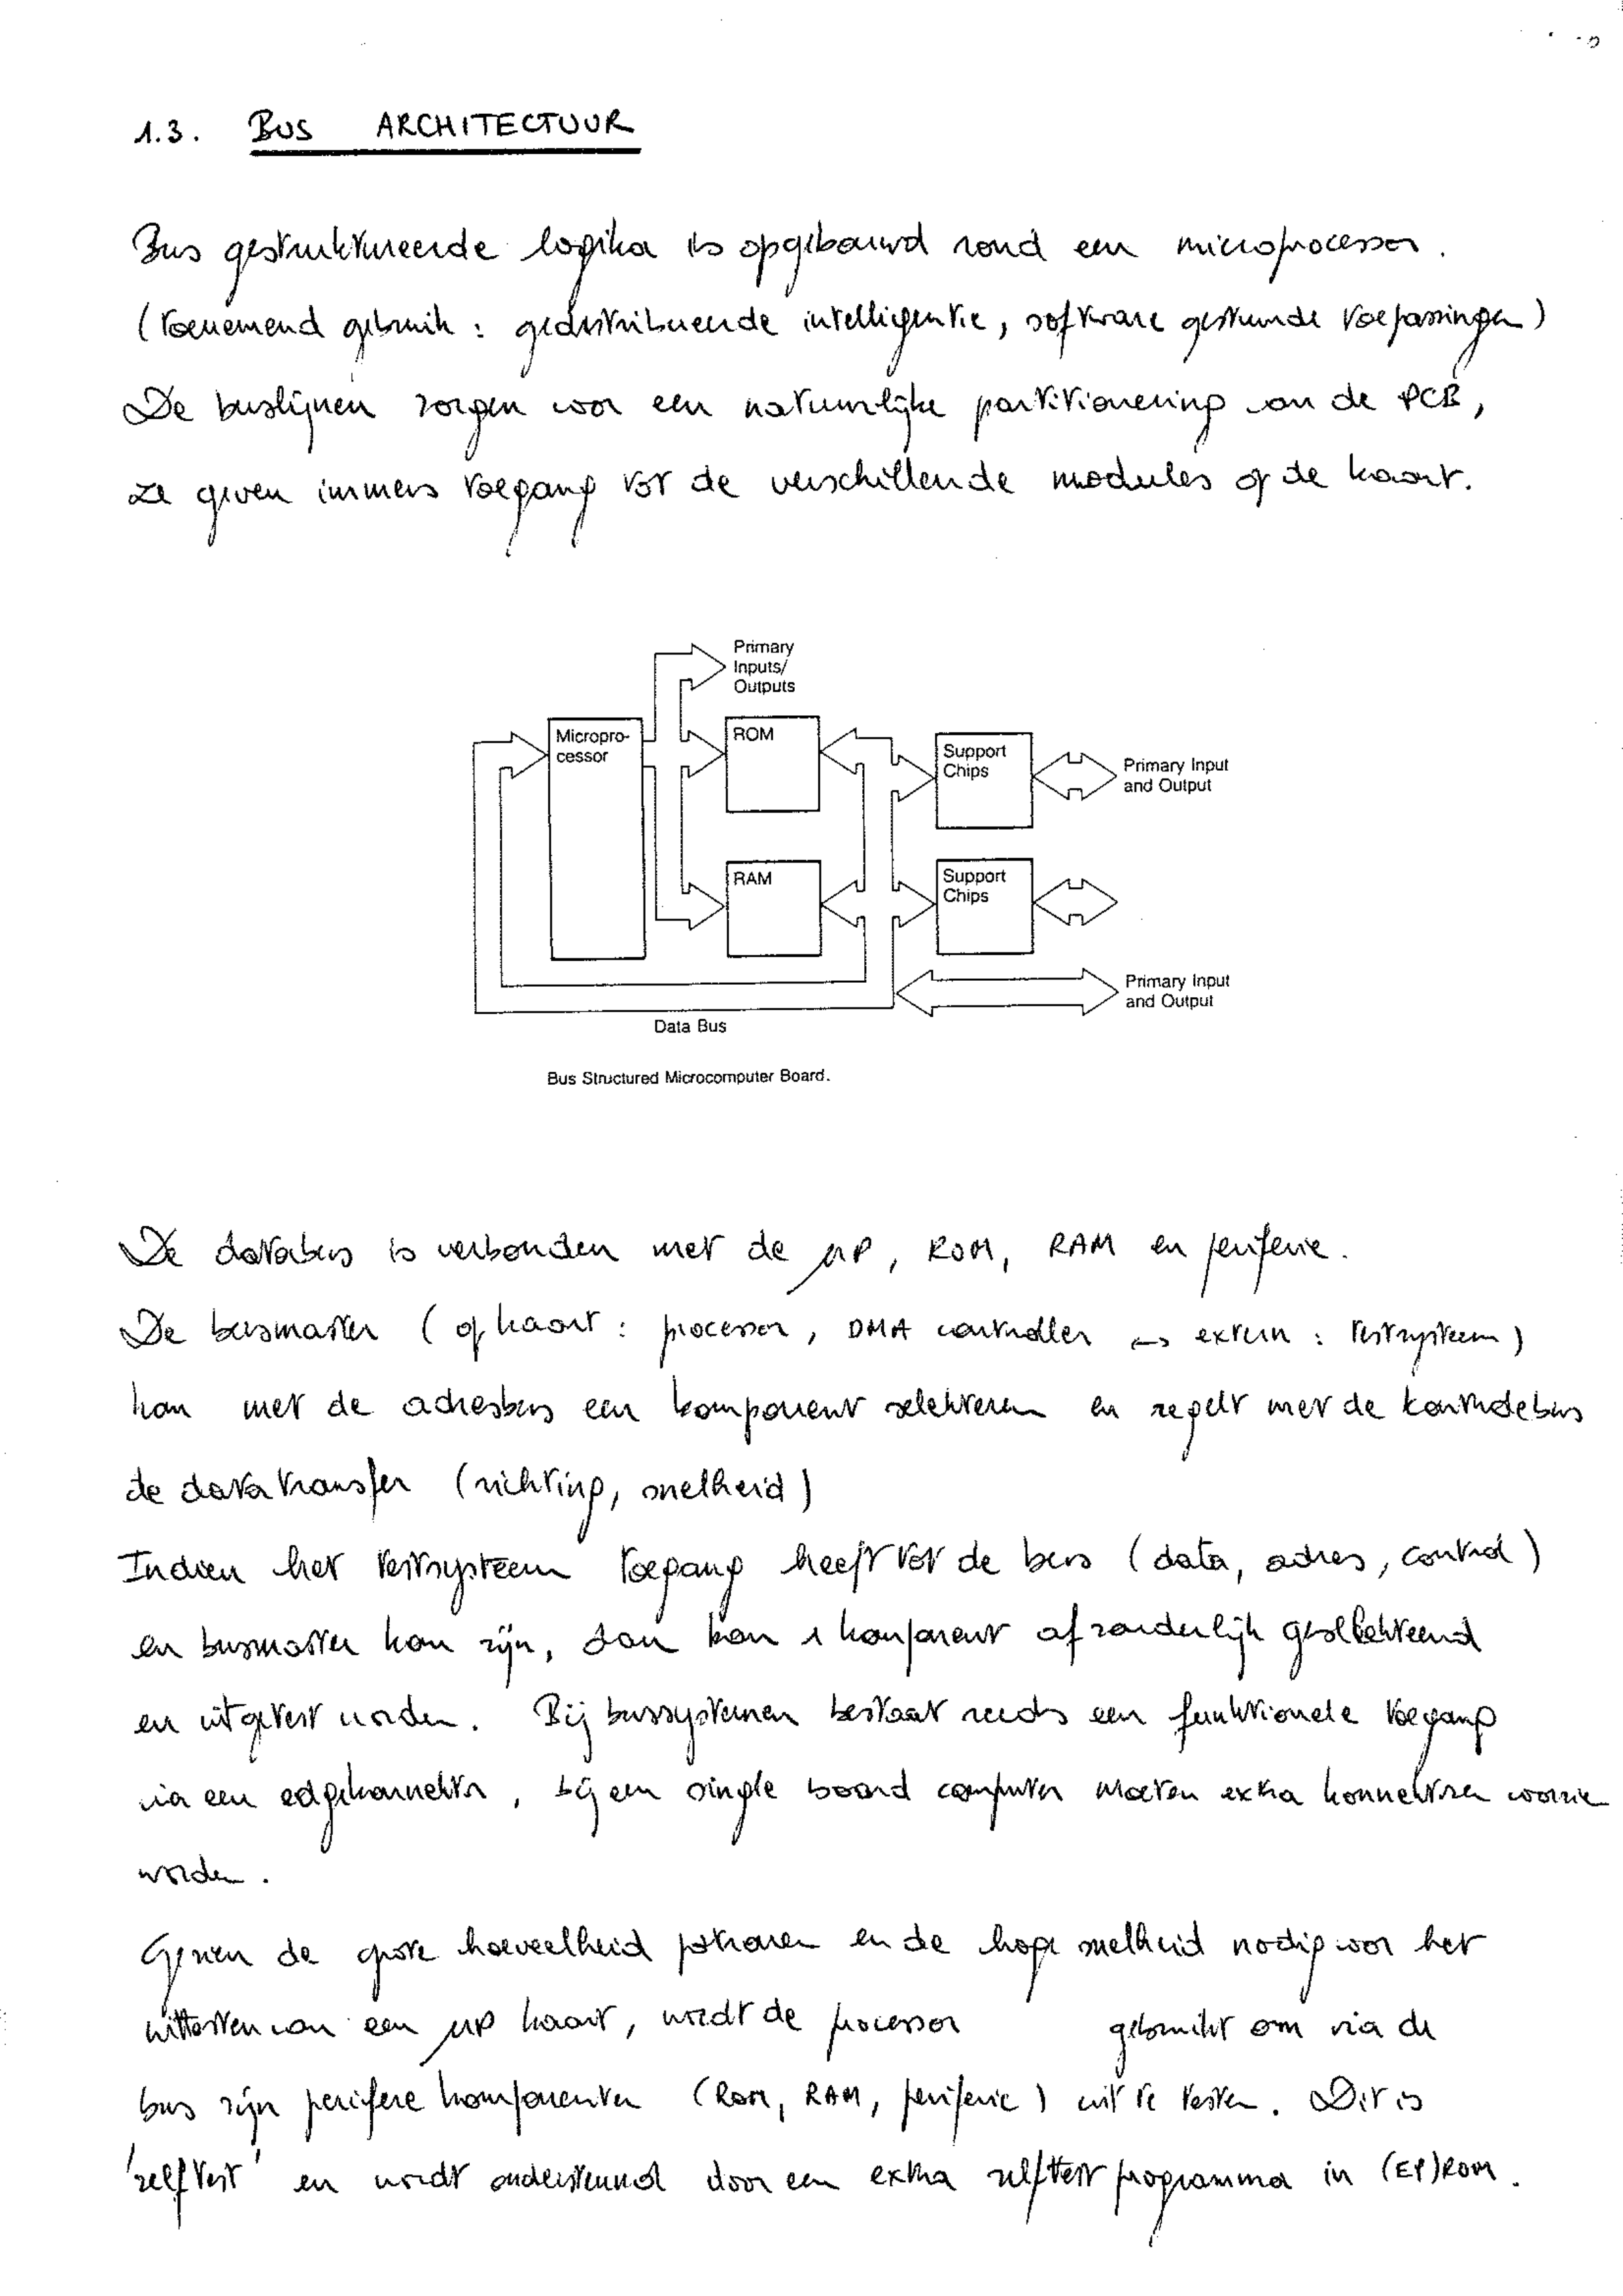 1.3. BUS ARCHITECTUUR
Bus gestruktureerde logika is opgebouwd rond een microprocessor.
(toenemend gebruik : gedistribueerde intelligentie, software gestuurde toepassingen)
De buslijnen zorgen voor een natuurlijke partitionering van de PCB,
ze geven immers toegang tot de verschillende modules op de kaart.
Primary
Inputs/
Outputs
Micropro-
cessor
ROM
Support
Chips
Primary Input
and Output
RAM
Support
Chips
Primary Input
and Output
Data Bus
Bus Structured Microcomputer Board.
De databus is verbonden met de µP, ROM, RAM en periferie.
De busmaster (op kaart : processor, DMA controller ↔ extern : testsysteem)
kan met de adresbus een komponent selekteren en regelt met de kontrolebus
de data transfer (richting, snelheid)
Indien het testsysteem toegang heeft tot de bus (data, adres, control)
en busmaster kan zijn, dan kan 1 komponent afzonderlijk geselekteerd
en uitgetest worden. Bij bussystemen bestaat reeds een funktionele toegang
via een edgekonnektor, bij een single board computer moeten extra konnektoren
worden.
Gezien de grote hoeveelheid patronen en de hoge snelheid nodig voor het
uittesten van een µP kaart, wordt de processor gebruikt om via de
bus zijn perifere komponenten (ROM, RAM, periferie) uit te testen. Dit is
'zelftest' en wordt ondersteund door een extra zelftest programma in (EP)ROM.